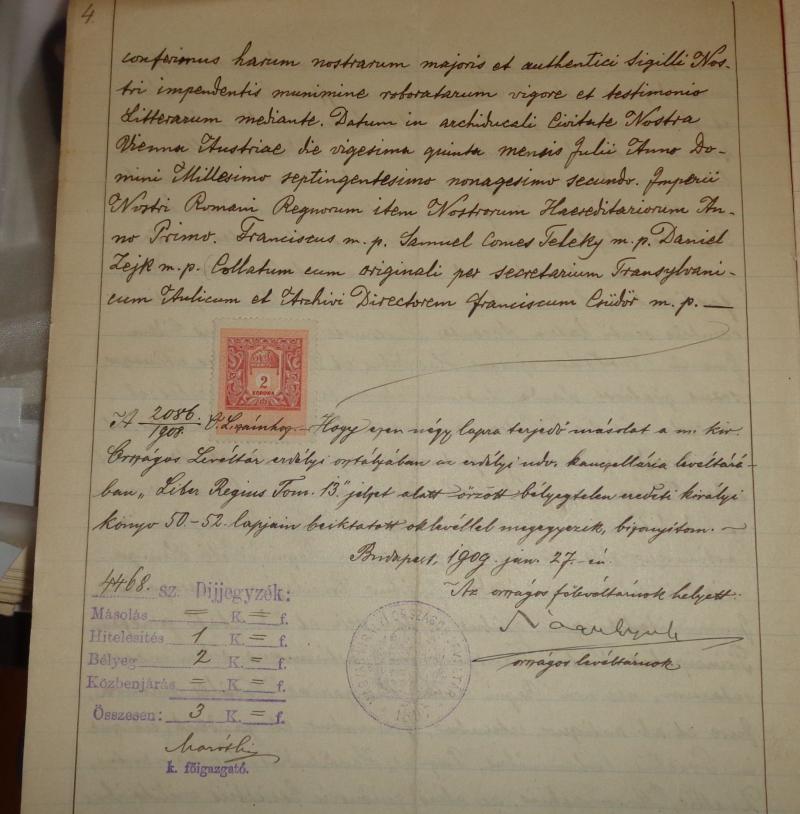 4.
conferimus harum nostrarum majoris et authentici Sigilli Nos-
tri impendentis munimine roboratarum vigore et testimonio
Litterarum mediante. Datum in archiducali Civitate Nostra
Vienna Austriae die vigesima quinta mensis Julii Anno Do-
mini Millesimo septingentesimo nonagesimo secundo. Imperii
Nostri Romani Regnorum item Nostrorum Haereditariorum An-
no Primo. Franciscus m. p. Samuel Comes Teleky m. p. Daniel
Zejk m. p. Collatum cum originali per secretarium Transylvani-
cum Aulicum et Archivi Directorem Franciscum Csüdör m. p. —
2
KORONA
A 2086/1908. O. L. számhoz. – Hogy ezen négy lapra terjedő másolat a m. kir.
Országos Levéltár erdélyi osztályában az erdélyi udv. kanczellária levéltárá-
ban „Liber Regius Tom. 13." jelzet alatt őrzött bélyegtelen eredeti királyi
könyv 50–52. lapjain beiktatott oklevéllel megegyezik, bizonyítom. –
Budapest, 1909. jan. 27-én
Az országos főlevéltárnok helyett:
országos levéltárnok
4468. sz. Díjjegyzék:
Másolás = K. = f.
Hitelesítés 1 K. = f.
Bélyeg 2 K. = f.
Közbenjárás = K. = f.
Összesen: 3 K. = f.
k. főigazgató.